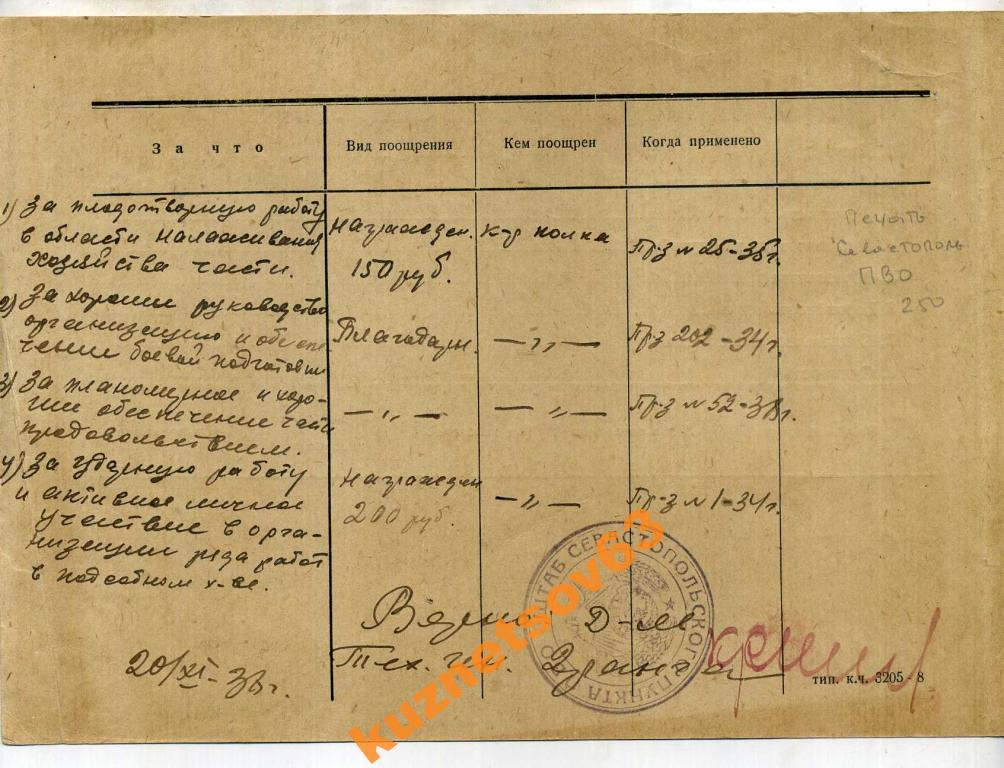 За что
Вид поощрения
Кем поощрен
Когда применено
1) За плодотворную работу
в области налаживания
хозяйства части.
Награжден.
150 руб.
к-р полка
Пр-з № 25-35г.
2) За хорошее руководство
организацию и обеспе
чение боевой подготовки
Благодарн.
— „ —
Пр-з 202-34г.
3) За планомерное и хоро-
шее обеспечение части
продовольствием.
— „ —
— „ —
Пр-з №
4) За ударную работу
и активное личное
участие в орга-
низации ряда работ
в подсобном х-ве.
Награжден
200 руб.
— „ —
Пр-з № 1-34г.
Печать
Севастополь
ПВО
250
Верно: Д-ль
Тех.
20/XI-
ШТАБ СЕВАСТОПОЛЬСКОГО ПУНКТА ПВО
тип. к.ч. 3205-8
kuznetsov63